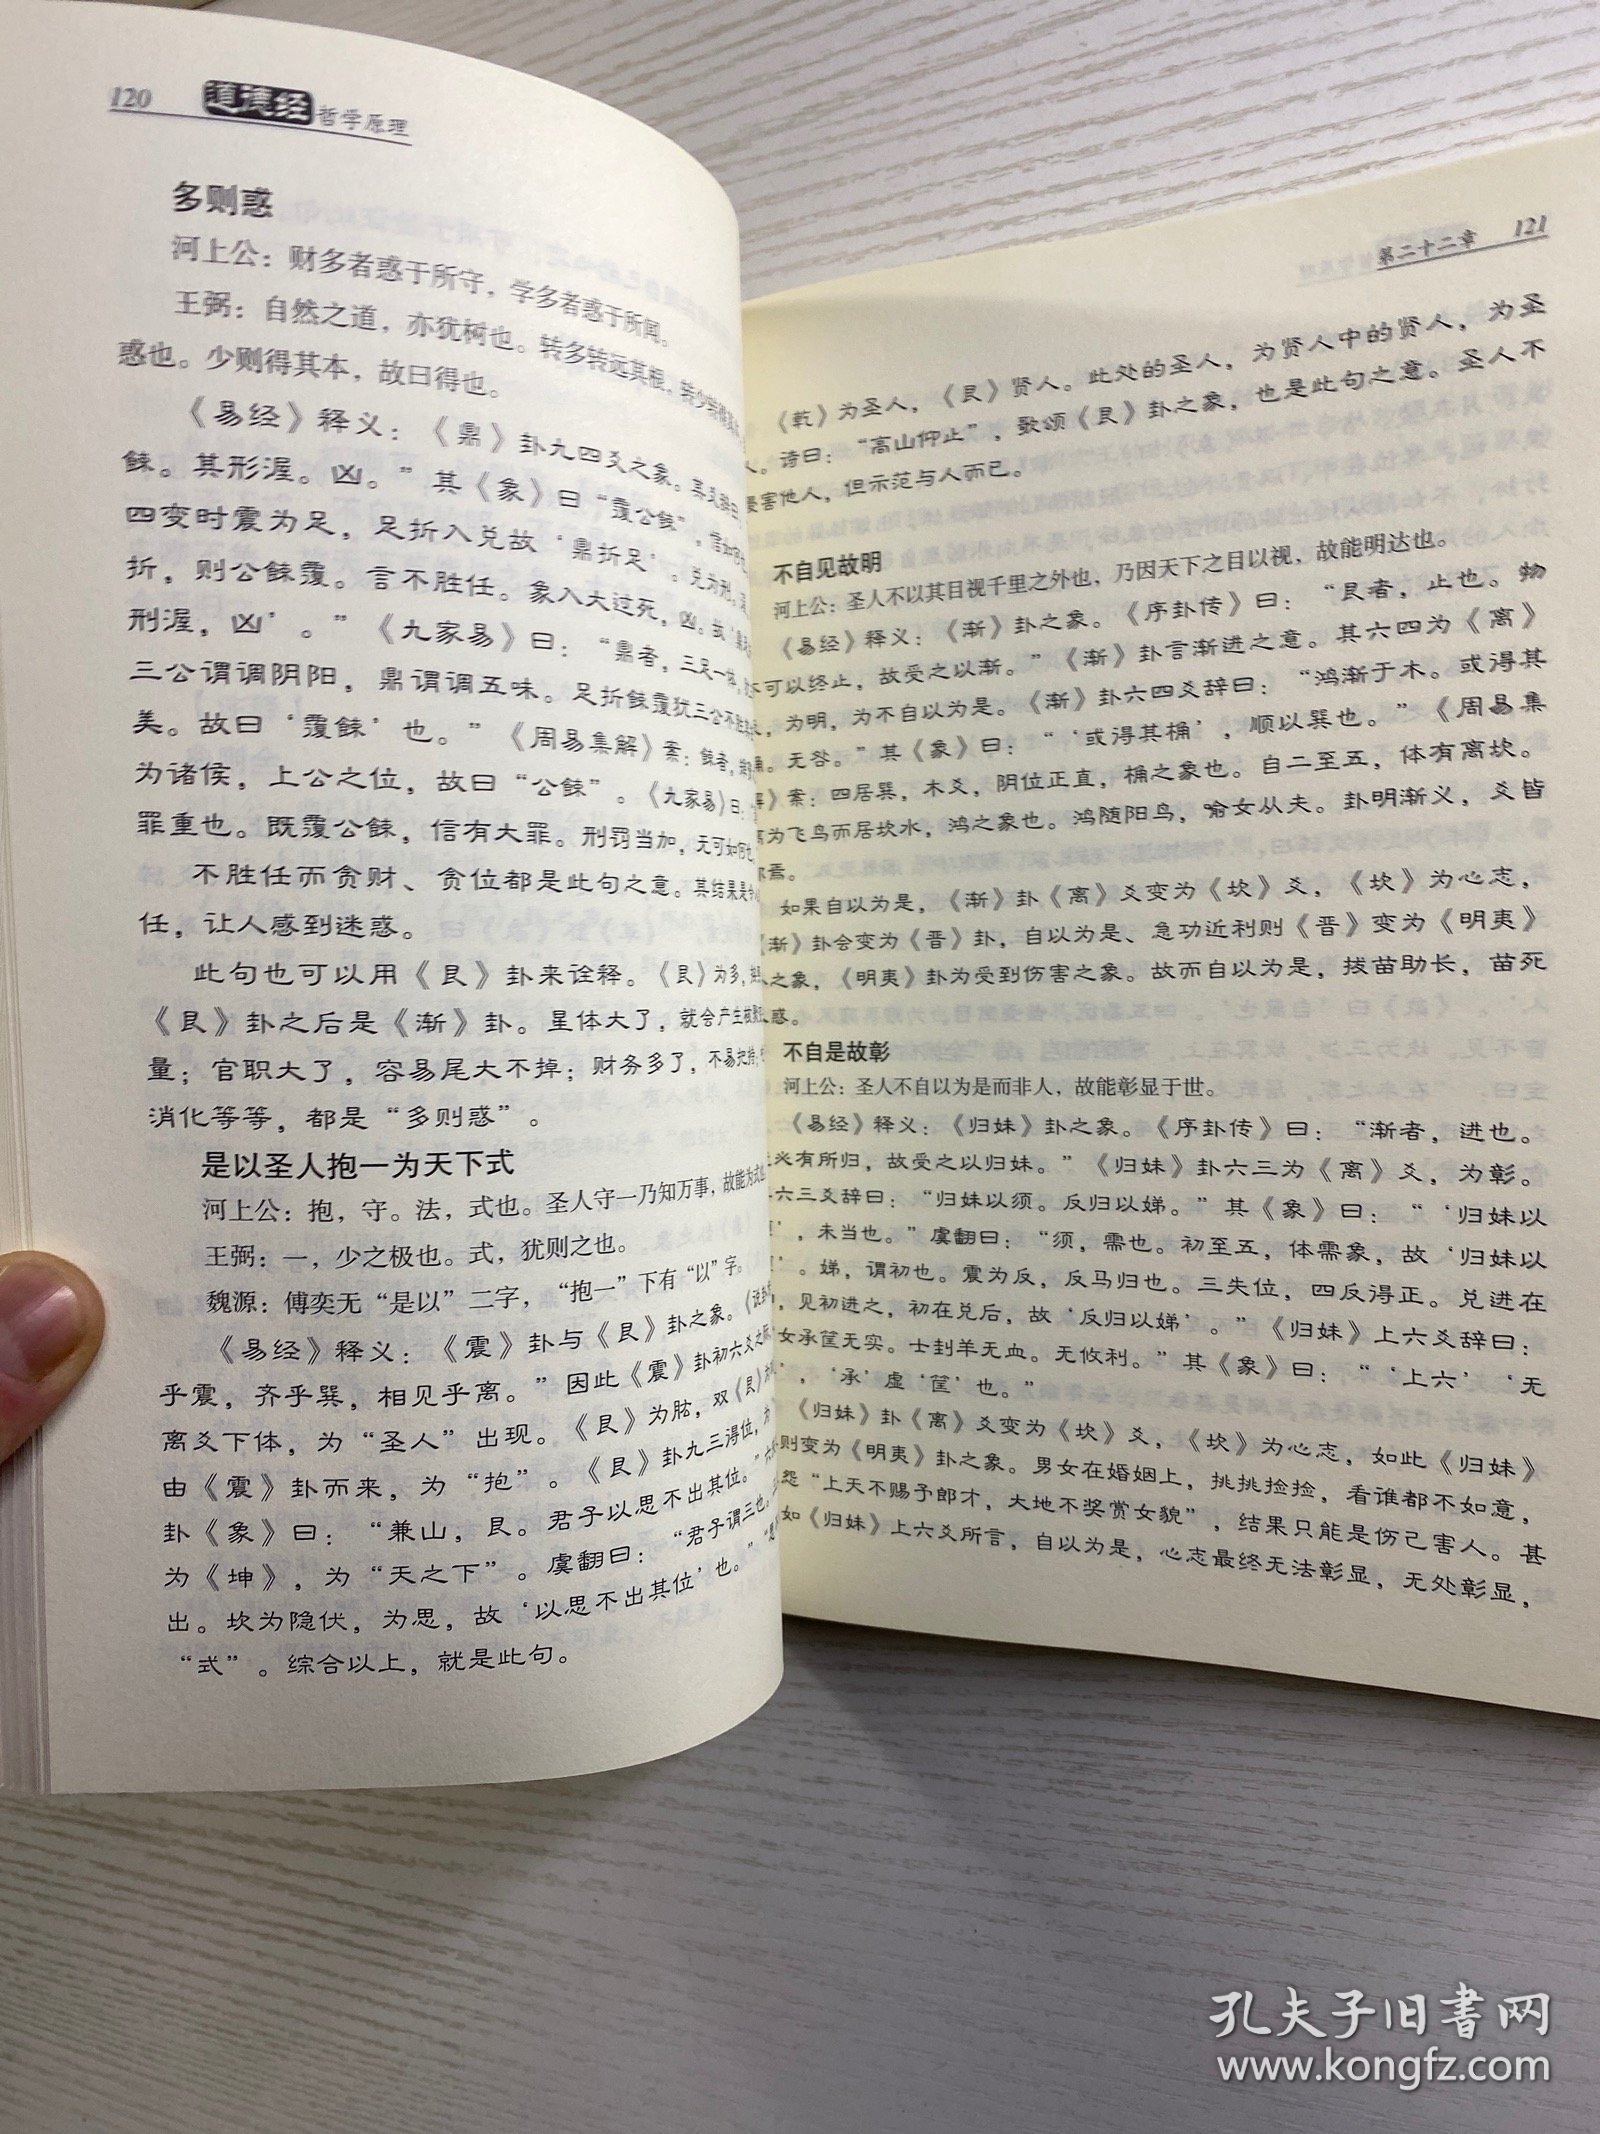 120 道德经 哲学原理
多则惑
河上公：财多者惑于所守，学多者惑于所闻。
王弼：自然之道，亦犹树也。转多转远其根，转少转得其
惑也。少则得其本，故曰得也。
《易经》释义：《鼎》卦九四爻之象。其爻辞曰
餗。其形渥。凶。”其《象》曰“覆公餗”，信如何
四变时震为足，足折入兑故‘鼎折足’。兑为刑。
折，则公餗覆。言不胜任。象入大过死，凶。故‘鼎
刑渥，凶’。”《九家易》曰：“鼎者，三足一体，
三公谓调阴阳，鼎谓调五味。足折餗覆犹三公不胜其
美。故曰‘覆餗’也。”《周易集解》案：餗者，
为诸侯，上公之位，故曰“公餗”。《九家易》曰：
罪重也。既覆公餗，信有大罪。刑罚当加，无可如何也
不胜任而贪财、贪位都是此句之意。其结果是令
任，让人感到迷惑。
此句也可以用《艮》卦来诠释。《艮》为多，
《艮》卦之后是《渐》卦。星体大了，就会产生核聚
量；官职大了，容易尾大不掉；财务多了，不易把持；
消化等等，都是“多则惑”。
是以圣人抱一为天下式
河上公：抱，守。法，式也。圣人守一乃知万事，故能为式
王弼：一，少之极也。式，犹则之也。
魏源：傅奕无“是以”二字，“抱一”下有“以”字。
《易经》释义：《震》卦与《艮》卦之象。《说
乎震，齐乎巽，相见乎离。”因此《震》卦初六爻之
离爻下体，为“圣人”出现。《艮》为肱，双《艮》
由《震》卦而来，为“抱”。《艮》卦九三得位，
卦《象》曰：“兼山，艮。君子以思不出其位。”
为《坤》，为“天之下”。虞翻曰：“君子谓三也。
出。坎为隐伏，为思，故‘以思不出其位’也。”
“式”。综合以上，就是此句。
第二十二章 121
《乾》为圣人，《艮》贤人。此处的圣人，为贤人中的贤人，为圣
人。诗曰：“高山仰止”，歌颂《艮》卦之象，也是此句之意。圣人不
害他人，但示范与人而已。
不自见故明
河上公：圣人不以其目视千里之外也，乃因天下之目以视，故能明达也。
《易经》释义：《渐》卦之象。《序卦传》曰：“艮者，止也。物
不可以终止，故受之以渐。”《渐》卦言渐进之意。其六四为《离》
，为明，为不自以为是。《渐》卦六四爻辞曰：“鸿渐于木。或得其
桷。无咎。”其《象》曰：“‘或得其桷’，顺以巽也。”《周易集
解》案：四居巽，木爻，阴位正直，桷之象也。自二至五，体有离坎。
离为飞鸟而居坎水，鸿之象也。鸿随阳鸟，喻女从夫。卦明渐义，爻皆
焉。
如果自以为是，《渐》卦《离》爻变为《坎》爻，《坎》为心志，
《渐》卦会变为《晋》卦，自以为是、急功近利则《晋》变为《明夷》
之象，《明夷》卦为受到伤害之象。故而自以为是，拔苗助长，苗死
人惑。
不自是故彰
河上公：圣人不自以为是而非人，故能彰显于世。
《易经》释义：《归妹》卦之象。《序卦传》曰：“渐者，进也。
进必有所归，故受之以归妹。”《归妹》卦六三为《离》爻，为彰。
六三爻辞曰：“归妹以须。反归以娣。”其《象》曰：“‘归妹以
须’，未当也。”虞翻曰：“须，需也。初至五，体需象，故‘归妹以
须’。娣，谓初也。震为反，反马归也。三失位，四反得正。兑进在
，见初进之，初在兑后，故‘反归以娣’。”《归妹》上六爻辞曰：
女承筐无实。士刲羊无血。无攸利。”其《象》曰：“‘上六’‘无
’，‘承’虚‘筐’也。”
《归妹》卦《离》爻变为《坎》爻，《坎》为心志，如此《归妹》
则变为《明夷》卦之象。男女在婚姻上，挑挑捡捡，看谁都不如意，
怨“上天不赐予郎才，大地不奖赏女貌”，结果只能是伤己害人。甚
如《归妹》上六爻所言，自以为是，心志最终无法彰显，无处彰显，
孔夫子旧书网
www.kongfz.com